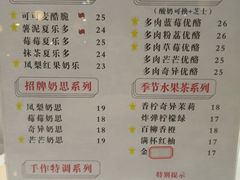 可可麦脆脆 25
薯泥夏乐多 24
莓莓夏乐多 24
抹茶夏乐多 24
凤梨红果奶乐 25
招牌奶思系列
凤梨奶思 19
莓莓奶思 18
奇异奶思 18
芒芒奶思 19
手作特调系列
(酸奶可换+芝士)
多肉蓝莓优酪 26
多肉粉荔优酪 26
多肉草莓优酪 25
多肉芒芒优酪 25
多肉奇异优酪 24
季节水果茶系列
香柠奇异茉莉 18
炸弹柠檬绿 17
百柳香橙 18
满杯红柚 17
金 17
特别提示